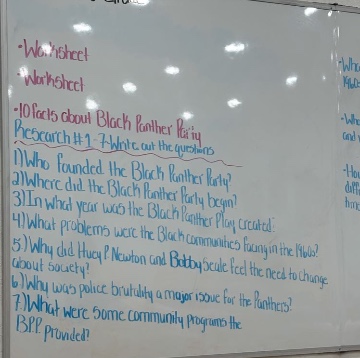 •Worksheet
•Worksheet
•10 facts about Black Panther Party
Research #1-7-Write out the questions
1) Who founded the Black Panther Party?
2) Where did the Black Panther Party begin?
3) In what year was the Black Panther Play created:
4) What problems were the Black communities facing in the 1960s?
5.) Why did Huey P. Newton and Bobby Seale feel the need to change
about society?
6) Why was police brutulity a major issue for the Panthers?
7.) What were some community programs the
B.P.P. provided?
•Who
1960s